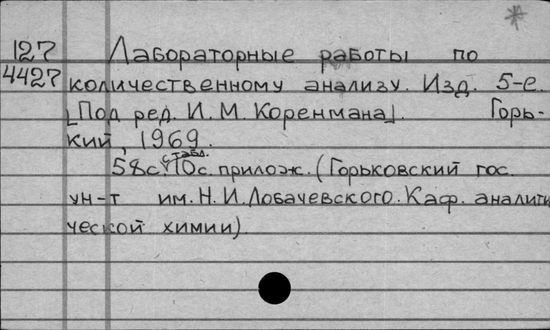 127 Лабораторные работы по
4427 количественному анализу. Изд. 5-е.
[Под ред. И. М. Коренмана]. Горь-
кий, 1969.
58 с. с табл. 10 с. прилож. (Горьковский гос.
ун-т им. Н. И. Лобачевского. Каф. аналити
ческой химии).